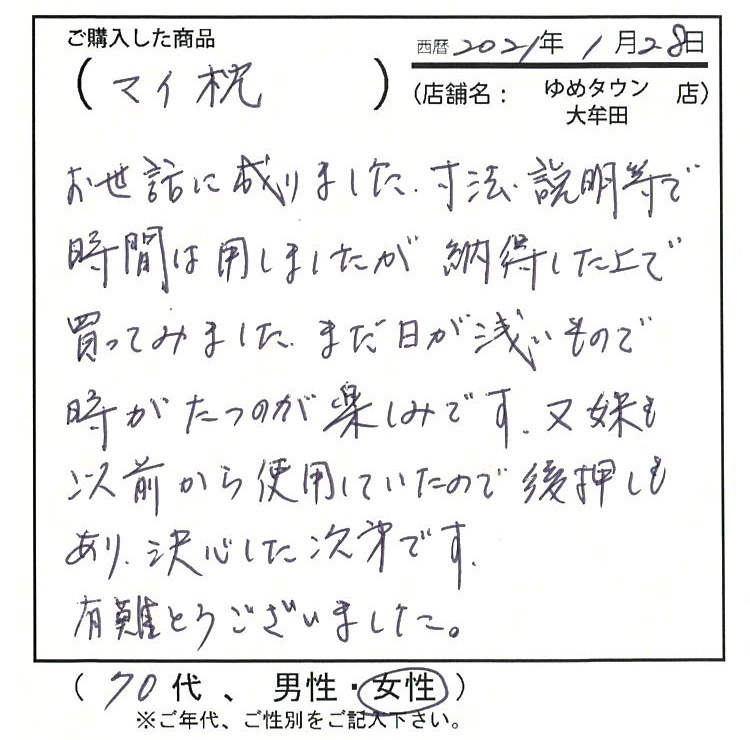 ご購入した商品
西暦 2021年 1月28日
(マイ枕)
(店舗名： ゆめタウン 大牟田 店)
お世話に成りました. 寸法、説明等で
時間は用しましたが 納得した上で
買ってみました. まだ日が浅いもので
時がたつのが楽しみです. 又妹も
以前から使用していたので後押しも
あり、決心した次第です.
有難とうございました。
(70代、男性・女性)
※ご年代、ご性別をご記入下さい。